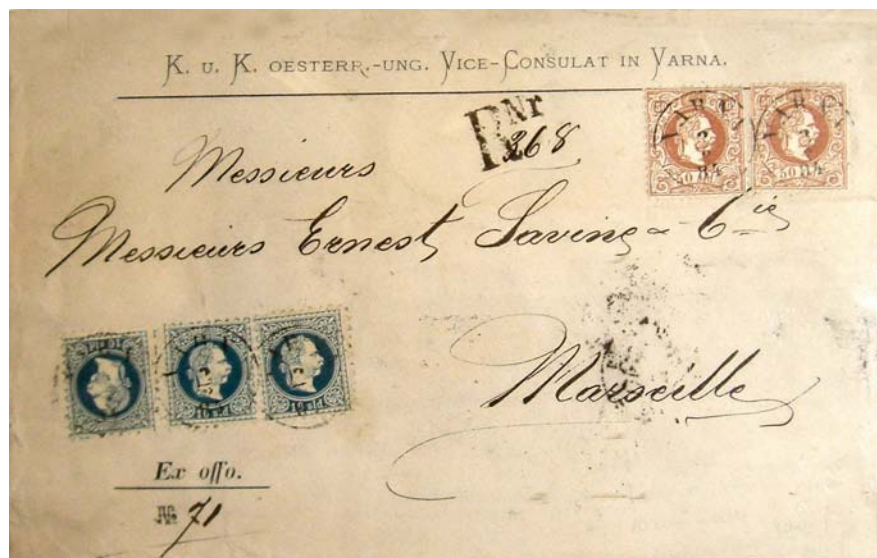 K. u. K. OESTERR.-UNG. VICE-CONSULAT IN VARNA.
R Nr
268
Messieurs
Messieurs Ernest Savine & Cie
Marseille
50 50
84 84
Ex offo.
№ 71